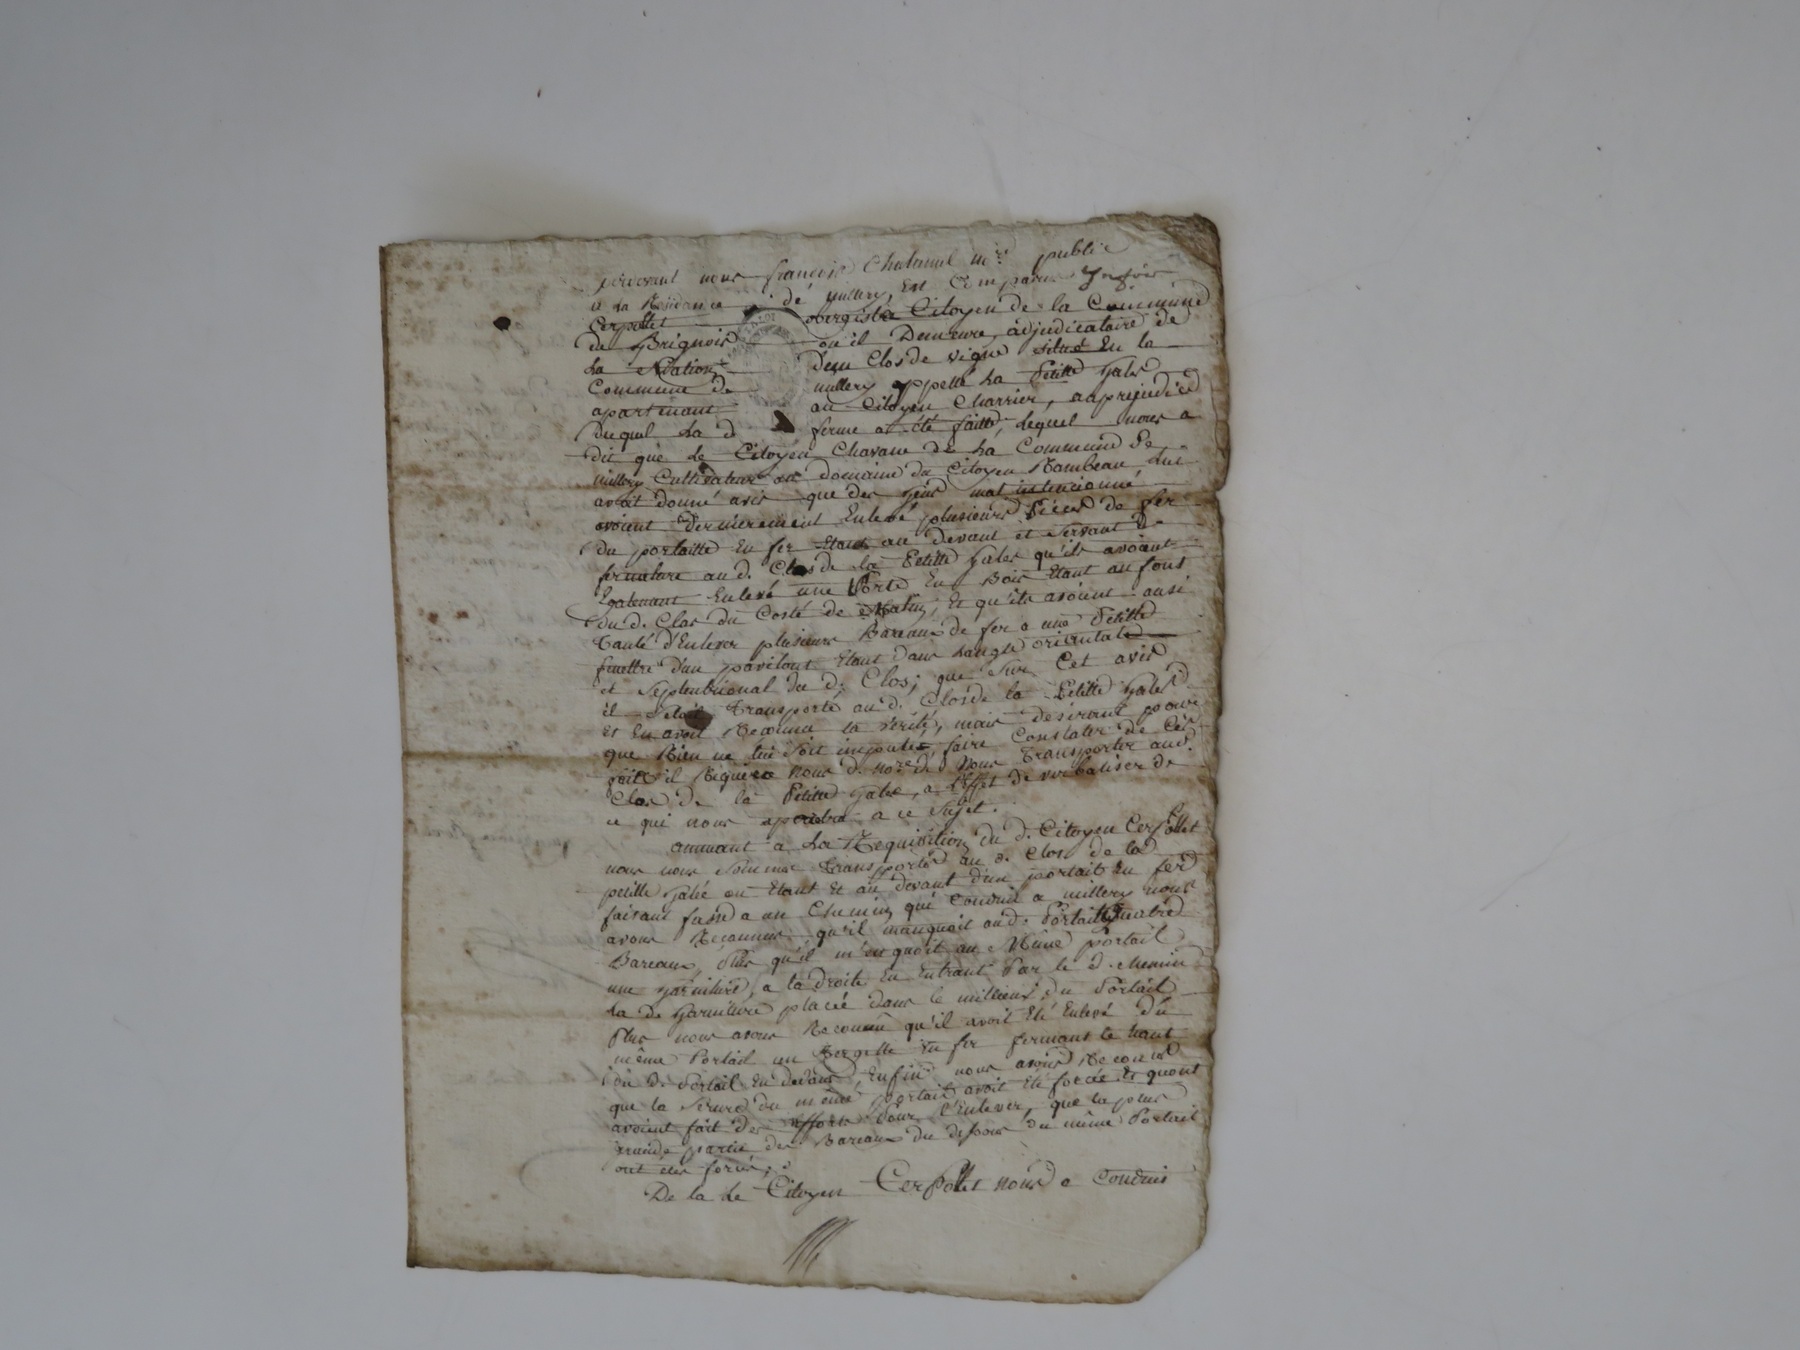 pardevant nous françois Chatanul no.re public
a La Residence de millery, Est Comparu
Cerpollet obergiste Citoyen de la Commune
de Brignois ou il Demeure, adjudicataire de
La Nation d'un Clos de vigne situé En la
Commune de millery appellé La Petitte Galée
apartenant au Citoyen Charrier, au prejudice
Duquel La d. ferme a été faitte, Lequel nous a
dit que Le Citoyen Chavane De La Commune De
millery Cultivateur au domaine du Citoyen Rambeau, Lui
avoit donné avis que des gens mal intencionné
avoient Dernierement Enlevé plusieurs Pieces de fer
du portaille En fer Etant au devant et Servant De
fermeture au d. Clos de la Petitte Galée qu'ils avoient
Egalement Enlevé une Porte En Bois Etant au fons
du d. Clos du Costé de, Et qu'ils avoient ausi
Tanté d'Enlever plusieurs Bareaux de fer a une Petitte
fenettre d'un pavilont Etant dans Langle orientale
et Septentrional du d. Clos; que Sur Cet avis
il S'etoit Transporté au d. Clos de la Petitte Galée
Et En avoit Reconnu la verité, mais desirant pour
que Rien ne lui Soit imputé, faire Constater de Ces
faits il Requiere Nous d. no.re de Nous Transporter au d.
Clos de la Petitte Galée, a L'Effet de verbaliser de
ce qui nous aparoitra a ce Sujet.
annuant a La Requisition du d. Citoyen Cerpollet
nous nous Somme Transporté au d. Clos de la
petitte Galée ou Etant Et au devant d'un portail En fer
faisant fasse a un Chemin qui Conduit a millery nous
avons Reconnus qu'il manquoit au d. Portail Quatre
Bareaux, Plus qu'il m'enquoit au Même portail
une garniture, a la droite En Entrant Par le d. chemin
La de Garniture placée dans le millieux du Portail
Plus nous avons Reconnu qu'il avoit Eté Enlevé du
même Portail un Vergette En fer fermant le haut
du d. Portail En devant, Enfin nous avons Reconus
que la Serure du même portail avoit Eté forcée Et quont
avoient fait des Efforts Pour L'Enlever, que la plus
grande partie des Bareaux du desous du même Portail
ont etes forcés,
De la Le Citoyen Cerpollet nous a Conduis